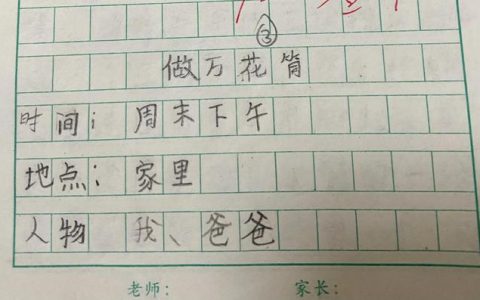 ③
做万花筒
时间：周末下午
地点：家里
人物 我、爸爸
老师： 家长：